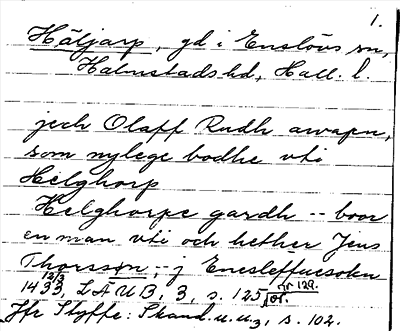 1.
Häljarp, gd i Enslövs sn,
Halmstads hd, Hall. l.
jech Olaff Rudh awapn,
som nylege bodhe vti
Helghorp
Helghorpe gardh -- boor
en man vti och hether Jens
Thorsson, - j Enesleffuesokn
12/3 1433 LAUB, 3, s. 125 nr 129. or.
Jfr Styffe: Skand. u. u.3, s. 102.